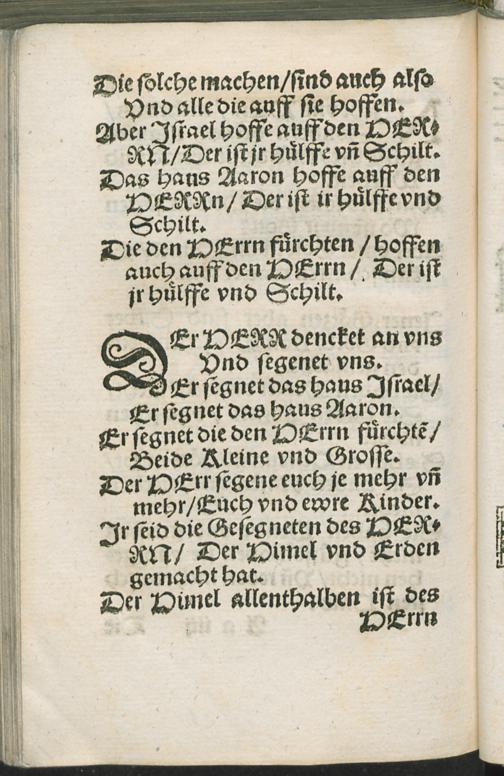 Die solche machen/sind auch also
Vnd alle die auff sie hoffen.
Aber Israel hoffe auff den HER-
RN/Der ist jr hülffe vñ Schilt.
Das haus Aaron hoffe auff den
HERRn/ Der ist ir hülffe vnd
Schilt.
Die den HErrn fürchten / hoffen
auch auff den HErrn / Der ist
jr hülffe vnd Schilt.
DEr HERR dencket an vns
Vnd segenet vns.
Er segnet das haus Israel/
Er segnet das haus Aaron.
Er segnet die den HErrn fürchtẽ/
Beide Kleine vnd Grosse.
Der HErr segene euch je mehr vñ
mehr/Euch vnd ewre Kinder.
Ir seid die Gesegneten des HER-
RN/ Der Himel vnd Erden
gemacht hat.
Der Himel allenthalben ist des
HErrn